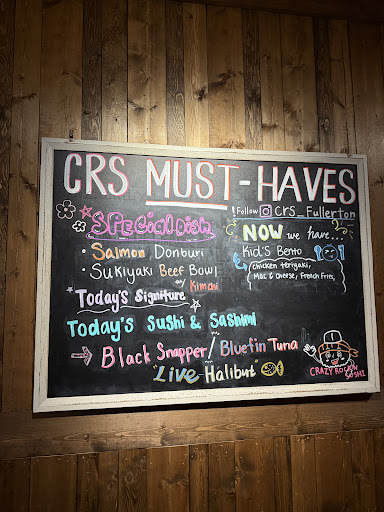 CRS MUST-HAVES
! Follow CRS_Fullerton
Special Dish
· Salmon Donburi
· Sukiyaki Beef Bowl
w/ Kimchi
NOW we have...
Kid's Bento
Chicken teriyaki,
Mac & Cheese, French Fries,
Today's Signiture
Today's Sushi & Sashimi
Black Snapper/ Bluefin Tuna
"Live" Halibut
CRAZY ROCK'N
SUSHI